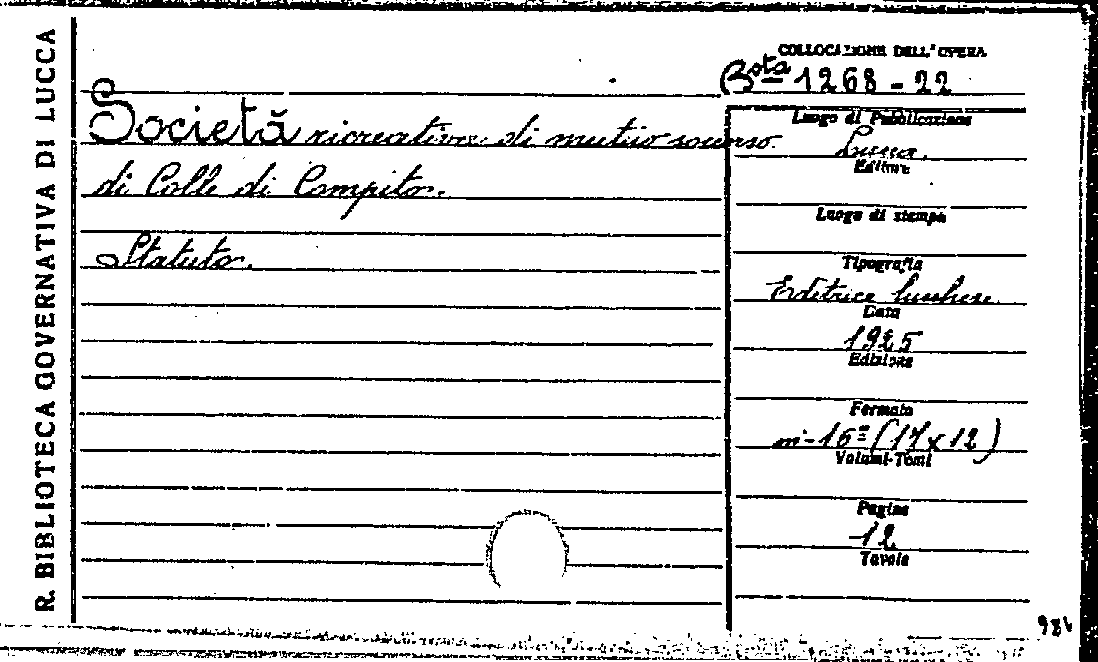 R. BIBLIOTECA GOVERNATIVA DI LUCCA
COLLOCAZIONE DELL'OPERA
Bᵒˢᵗᵃ 1268-22
Società ricreativa di mutuo soccorso
di Colle di Compito.
Statuto.
Luogo di Pubblicazione
Lucca.
Editore
Luogo di stampa
Tipografia
Editrice lucchese
Data
1925
Edizione
Formato
in-16º (17x12)
Volumi-Tomi
Pagine
12
Tavole